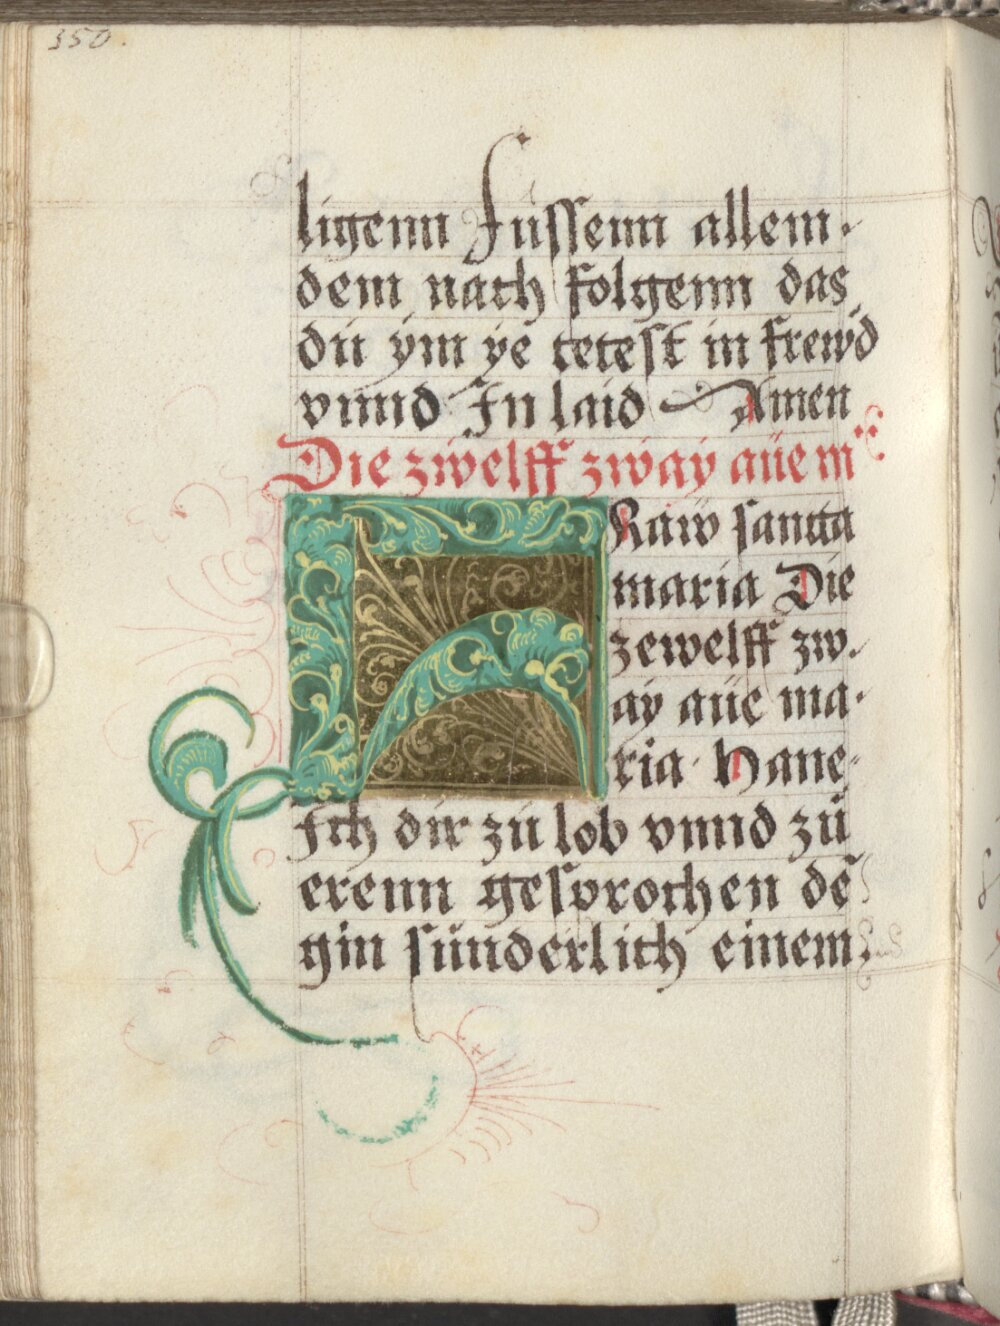 350.
ligenn füssenn allem
dem nach folgenn das
dü ÿm ÿe tetest in frewd
vnnd In laid Amen
Die zwelff zway aüe m
Raw sancta
maria Die
zewelff zw
ay aüe ma
ria hane
Ich dir zü lob vnnd zü
erenn gesprochen de
gin sünderlich einem